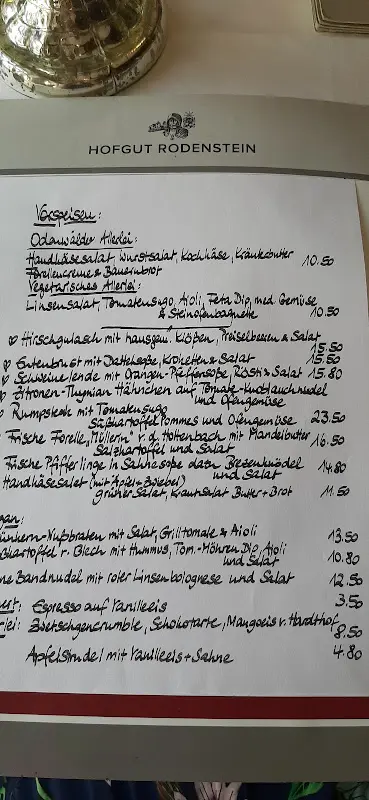 HOFGUT RODENSTEIN
Vorspeisen:
Odenwälder Allerlei:
Handkäsesalat, Wurstsalat, Kochkäse, Kräuterbutter
Forellencreme & Bauernbrot 10.50
Vegetarisches Allerlei:
Linsensalat, Tomatensugo, Aioli, Feta Dip, med. Gemüse
& Steinofenbaguette 10.50
Hirschgulasch mit hausgem. Klößen, Preiselbeeren & Salat
15.50
Entenbrust mit Dattelsoße, Kroketten & Salat 15.50
Schweinelende mit Orangen-Pfeffersoße, Rösti & Salat 15.80
Zitronen-Thymian Hähnchen auf Tomate-Knoblauchnudel
und Ofengemüse
Rumpsteak mit Tomatensugo
Süßkartoffelpommes und Ofengemüse 23.50
Frische Forelle "Müllerin" v. d. Hottenbach mit Mandelbutter
Salzkartoffel und Salat 16.50
Frische Pfifferlinge in Sahnesoße dazu Brezenknödel
und Salat 14.80
Handkäsesalat (mit Apfel + Zwiebel)
grüner Salat, Krautsalat Butter + Brot 11.50
gan:
Nußbraten mit Salat, Grilltomate & Aioli 13.50
kartoffel v. Blech mit Hummus, Tom.-Möhren Dip, Aioli
und Salat 10.80
ne Bandnudel mit roter Linsenbolognese und Salat 12.50
Espresso auf Vanilleeis 3.50
Zwetschgencrumble, Schokotarte, Mangoeis v. Hardthof
8.50
Apfelstrudel mit Vanilleeis + Sahne 4.80